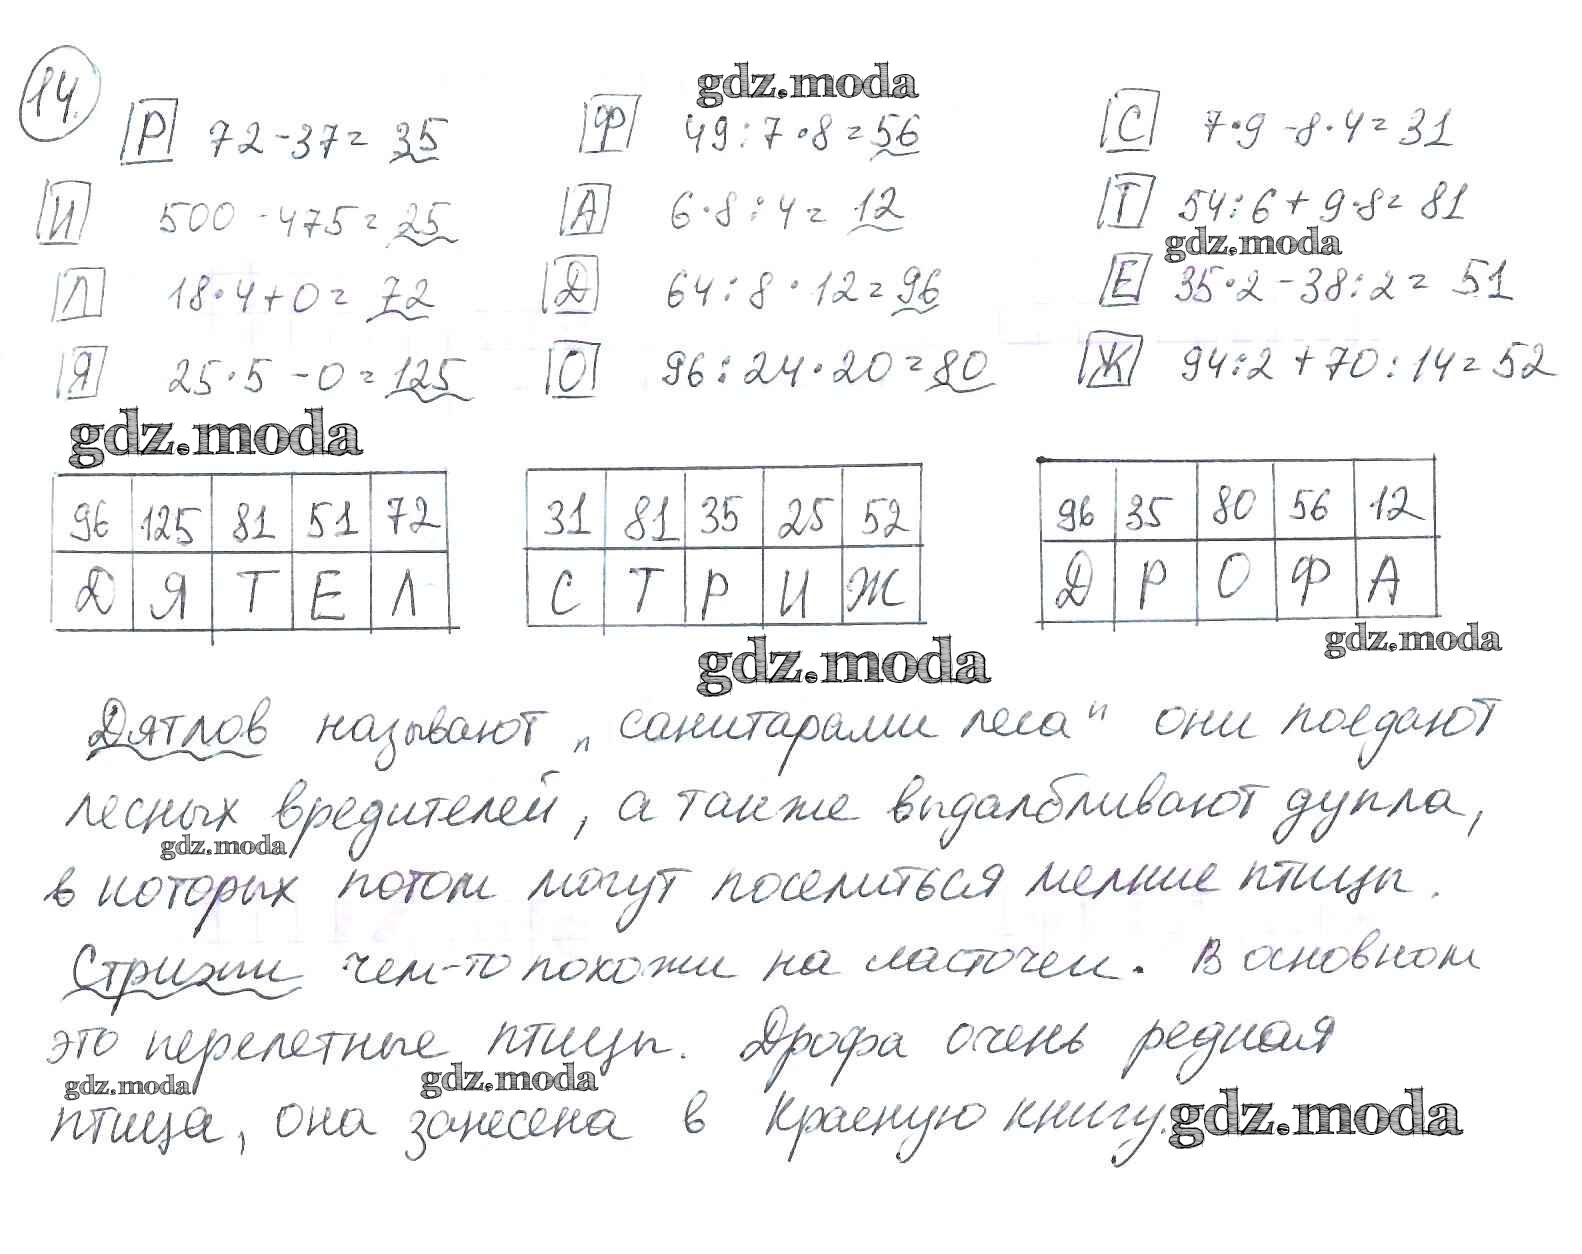 14.
gdz.moda
Р 72-37=35 Ф 49:7·8=56 С 7·9-8·4=31
И 500-475=25 А 6·8:4=12 Т 54:6+9·8=81
gdz.moda
Л 18·4+0=72 Д 64:8·12=96 Е 35·2-38:2=51
Я 25·5-0=125 О 96:24·20=80 Ж 94:2+70:14=52
gdz.moda
96 125 81 51 72 31 81 35 25 52 96 35 80 56 12
Д Я Т Е Л С Т Р И Ж Д Р О Ф А
gdz.moda
gdz.moda
Дятлов называют „санитарами леса" они поедают
лесных вредителей, а также выдалбливают дупла,
gdz.moda
в которых потом могут поселиться мелкие птицы.
Стрижи чем-то похожи на ласточек. В основном
это перелетные птицы. Дрофа очень редкая
gdz.moda gdz.moda
птица, она занесена в Красную книгу. gdz.moda